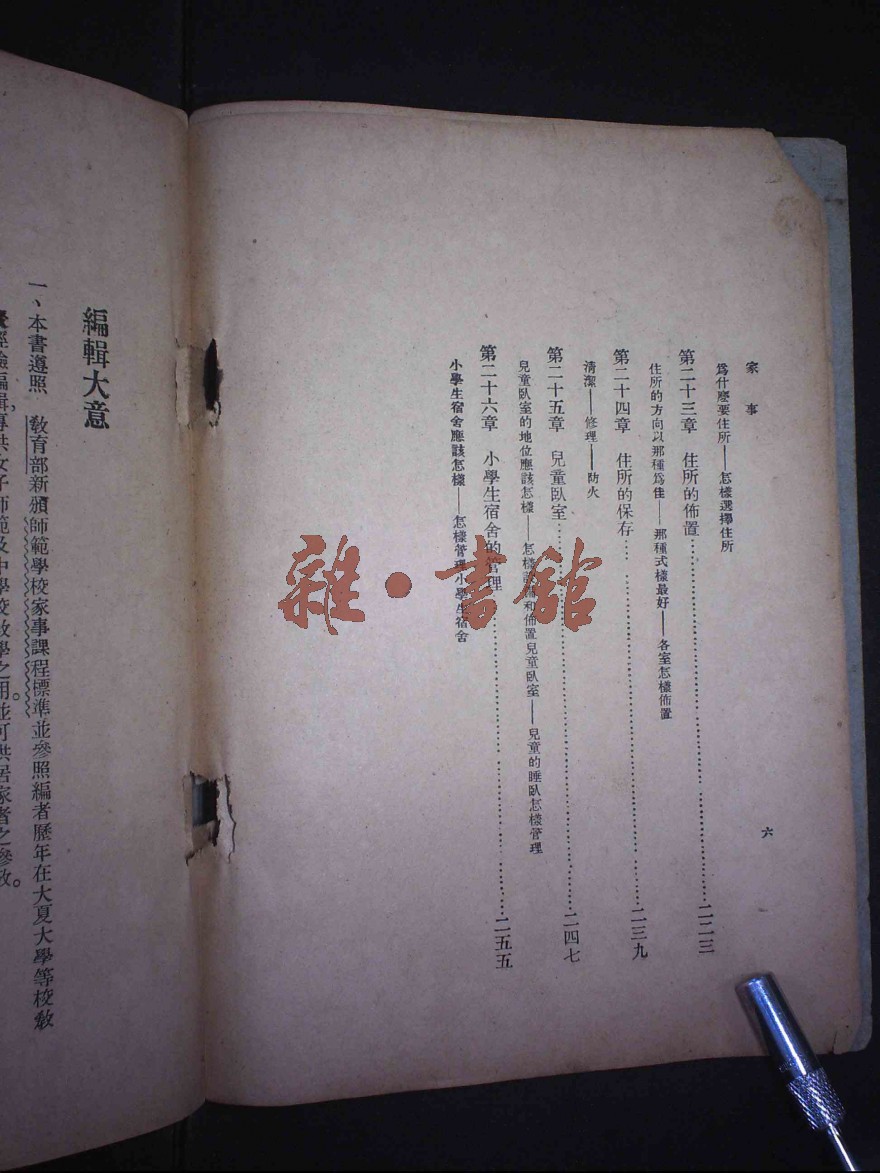 家事
六
為什麼要住所——怎樣選擇住所
第二十三章 住所的佈置……二二三
住所的方向以那種為佳——那種式樣最好——各室怎樣佈置
第二十四章 住所的保存……二三九
清潔——修理——防火
第二十五章 兒童臥室……二四七
兒童臥室的地位應該怎樣——怎樣設備和佈置兒童臥室——兒童的睡臥怎樣管理
第二十六章 小學生宿舍的管理……二五五
小學生宿舍應該怎樣——怎樣管理小學生宿舍
編輯大意
一、本書遵照 教育部新頒師範學校家事課程標準並參照編者歷年在大夏大學等校教
經驗編輯專供女子師範及中學校教學之用。並可供居家者之參攷。
雜·書館